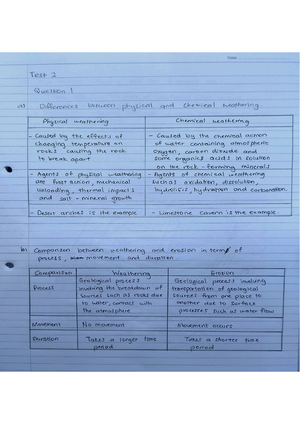 Test 2
Question 1
a) Differences between physical and chemical weathering.
Physical weathering
Chemical weathering
- Caused by the effects of
changing temperature on
rocks causing the rock
to break apart
- Caused by the chemical action
of water containing atmospheric
oxygen, carbon dioxide and
some organics acids in solution
on the rock-forming minerals
- Agents of physical weathering
are frost action, mechanical
unloading, thermal impacts
and salt-mineral growth
- Agents of chemical weathering
such as oxidation, dissolution,
hydrolisis, hydration and carbonation.
- Desert arches is the example
- Limestone Cavern is the example
b) Comparison between weathering and erosion in terms of
process, movement and duration
Comparison
Weathering
Erosion
Process
Geological process
involving the breakdown of
sources such as rocks due
to water contact with
the atmosphere
Geological process involving
transportation of geological
sources from one place to
another due to surface
processes such as water flow
Movement
No movement
Movement occurs
Duration
Takes a longer time
period
Takes a shorter time
period